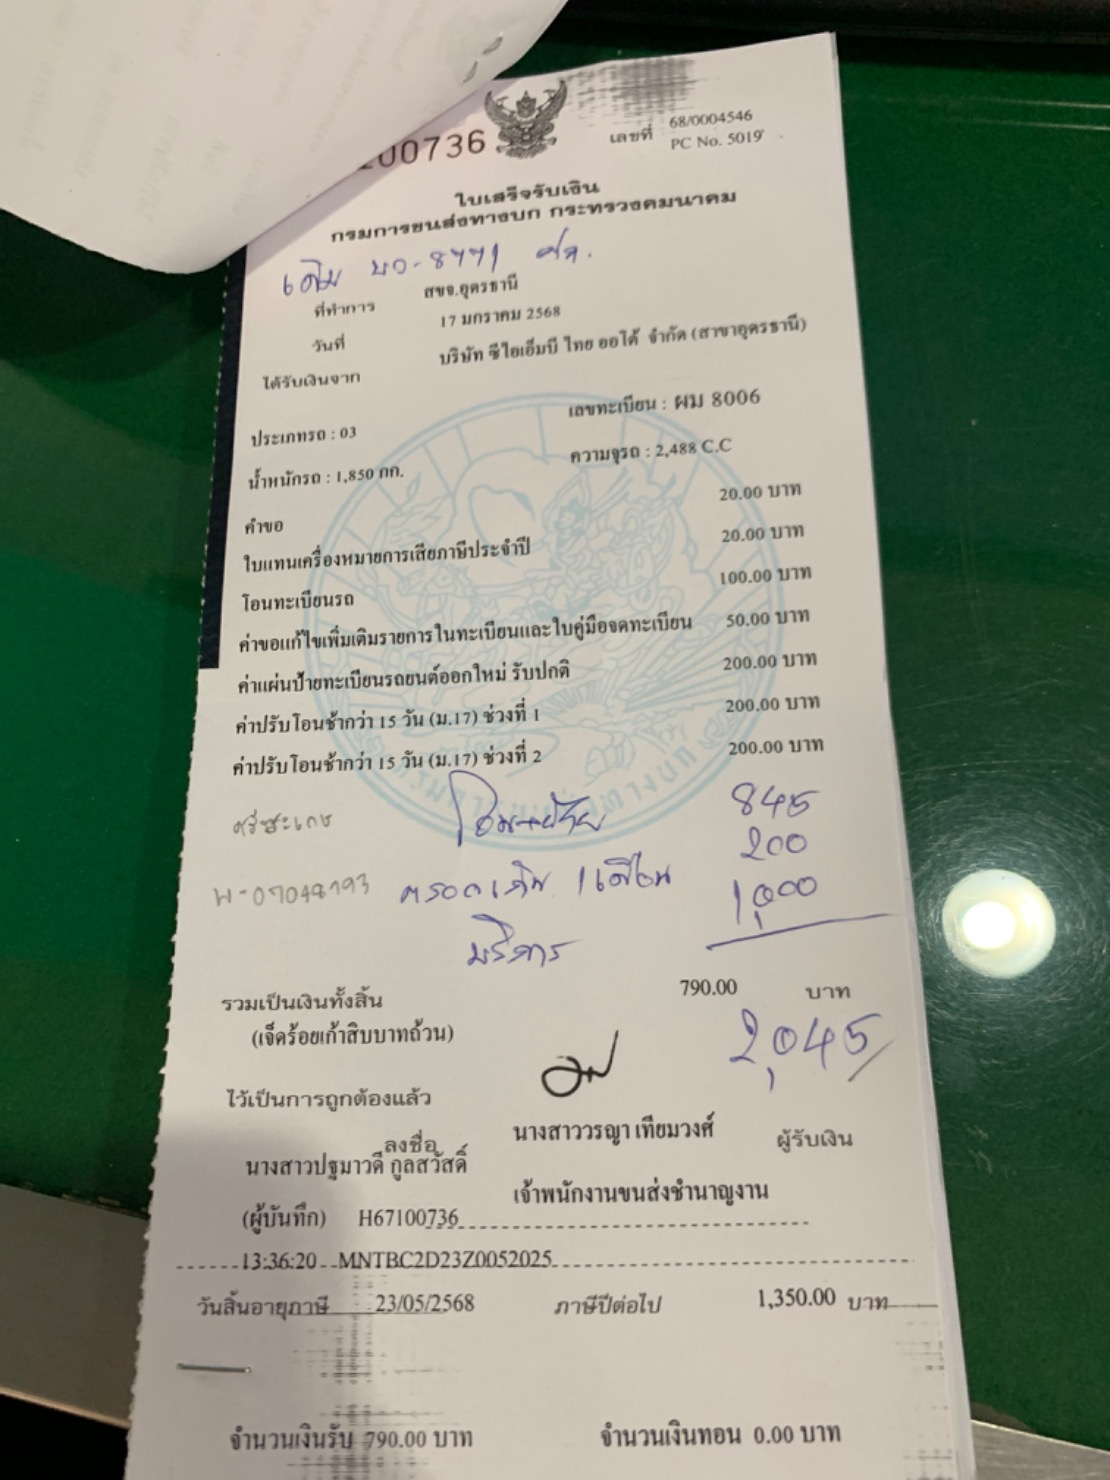 00736
เลขที่ 68/0004546
PC No. 5019
ใบเสร็จรับเงิน
กรมการขนส่งทางบก กระทรวงคมนาคม
เดิม 8771 ศก.
ที่ทำการ สขจ.อุดรธานี
วันที่ 17 มกราคม 2568
ได้รับเงินจาก บริษัท ซีไอเอ็มบี ไทย ออโต้ จำกัด (สาขาอุดรธานี)
ประเภทรถ : 03 เลขทะเบียน : ผม 8006
น้ำหนักรถ : 1,850 กก. ความจุรถ : 2,488 C.C
คำขอ 20.00 บาท
ใบแทนเครื่องหมายการเสียภาษีประจำปี 20.00 บาท
โอนทะเบียนรถ 100.00 บาท
ค่าขอแก้ไขเพิ่มเติมรายการในทะเบียนและใบคู่มือจดทะเบียน 50.00 บาท
ค่าแผ่นป้ายทะเบียนรถยนต์ออกใหม่ รับปกติ 200.00 บาท
ค่าปรับโอนช้ากว่า 15 วัน (ม.17) ช่วงที่ 1 200.00 บาท
ค่าปรับโอนช้ากว่า 15 วัน (ม.17) ช่วงที่ 2 200.00 บาท
ศรีสะเกษ โอน+ย้าย 845
200
ตรอ เกิน 1 เดือน 1,000
บริการ
รวมเป็นเงินทั้งสิ้น 790.00 บาท
(เจ็ดร้อยเก้าสิบบาทถ้วน) 2,045
ไว้เป็นการถูกต้องแล้ว
ลงชื่อ นางสาววรญา เทียมวงศ์ ผู้รับเงิน
นางสาวปฐมาวดี กูลสวัสดิ์
เจ้าพนักงานขนส่งชำนาญงาน
(ผู้บันทึก) H67100736
13:36:20 MNTBC2D23Z0052025
วันสิ้นอายุภาษี 23/05/2568 ภาษีปีต่อไป 1,350.00 บาท
จำนวนเงินรับ 790.00 บาท จำนวนเงินทอน 0.00 บาท